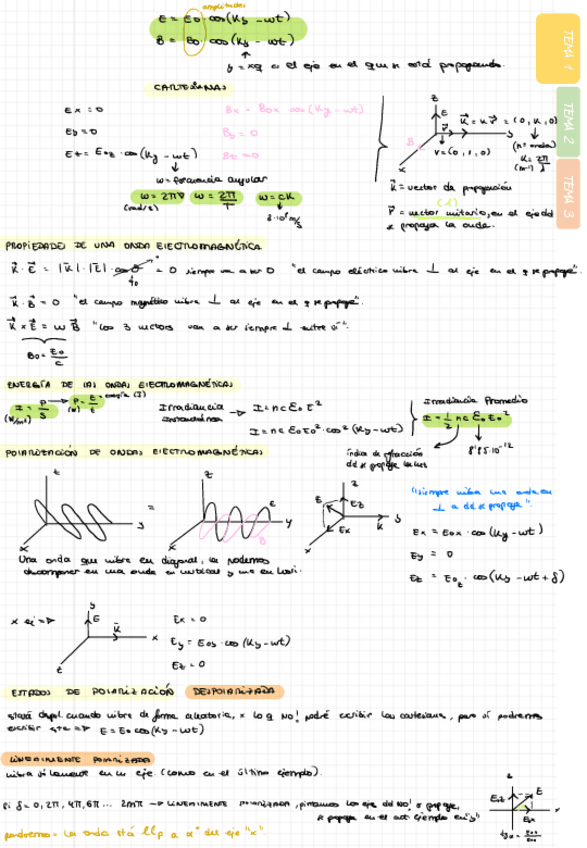 amplitudes
E = E₀ · cos(Ky - wt)
B = B₀ · cos(Ky - wt)
y = xq es el eje en el que se está propagando.
TEMA 1
TEMA 2
TEMA 3
CARTESIANAS
Ex = 0
Ey = 0
Ez = E₀z · cos(Ky - wt)
Bx = B₀x · cos(Ky - wt)
By = 0
Bz = 0
w = frecuencia angular
w = 2πν
w = 2π/T
w = cK
(rad/s)
3·10⁸ m/s
z
E
B
y
x
V = (0, 1, 0)
K = 2π/λ
(m⁻¹)
K = vector de propagación
V = vector unitario, en el eje dd
se propaga la onda.
PROPIEDADES DE UNA ONDA ELECTROMAGNÉTICA
K · E = |K| · |E| · cos = 0 siempre van a ser 0 "el campo eléctrico vibra ⊥ al eje en el q se propaga".
K · B = 0 "el campo magnético vibra ⊥ al eje en el q se propaga".
K × E = w B "Los 3 vectores van a ser siempre ⊥ entre sí".
B₀ = E₀/c
ENERGÍA DE LAS ONDAS ELECTROMAGNÉTICAS
I = P/S
(W/m²)
P = E/t
(W)
energía (J)
Irradiancia instantánea
I = n c ε₀ E²
I = n c ε₀ E₀² · cos²(Ky - wt)
Irradiancia Promedio
I = 1/2 n c ε₀ E₀²
índice de refracción
dd se propaga la luz
8'85·10⁻¹²
POLARIZACIÓN DE ONDAS ELECTROMAGNÉTICAS
z
y
x
=
z
E
y
B
x
z
E
Ez
Ex
K
y
x
"siempre vibra una onda en
⊥ a dd se propaga".
Ex = E₀x · cos(Ky - wt)
Ey = 0
Ez = E₀z · cos(Ky - wt + δ)
Una onda que vibre en diagonal, la podemos
descomponer en una onda en vertical y una en hori.
x ej =>
y
E
K
x
z
Ex = 0
Ey = E₀y · cos(Ky - wt)
Ez = 0
ESTADOS DE POLARIZACIÓN
DESPOLARIZADA
estará despol cuando vibre de forma aleatoria, x lo q NO! podré escribir las cartesianas, pero sí podremos
escribir => E = E₀ cos(Ky - wt)
LINEALMENTE POLARIZADA
vibra solamente en un eje. (como en el último ejemplo).
si δ = 0, 2π, 4π, 6π ... 2mπ → LINEALMENTE POLARIZADA, pintamos los eje dd NO! se propaga,
se propaga en el act ejemplo en "y"
pondremos = La onda está LLp a α° del eje "x".
Ez
E
Ex
x